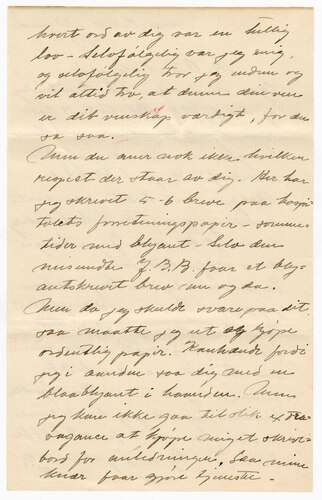 hvert ord av dig var en hellig
lov - Selvfølgelig var jeg enig,
og selvfølgelig tror jeg endnu og
vil altid tro, at denne din ven
er dit venskap værdigt, for den
sa saa.
Men du aner nok ikke hvilken
respect der staar av dig. Her har
jeg skrevet 5-6 breve paa hospi-
talets forretningspapir - somme-
tider med blyant - Selv den
J.B.B. faar et bly-
antskrevet brev nu og da.
Men da jeg skulde svare paa dit
saa maatte jeg ut og kjøpe
ordentlig papir. Kanhænde fordi
jeg i aanden saa dig med en
blaablyant i haanden. Men
jeg kan ikke gaa til slik extra-
vagance at kjøpe noget skrive-
bord for anledningen, saa mine
knær faar gjøre tjeneste.